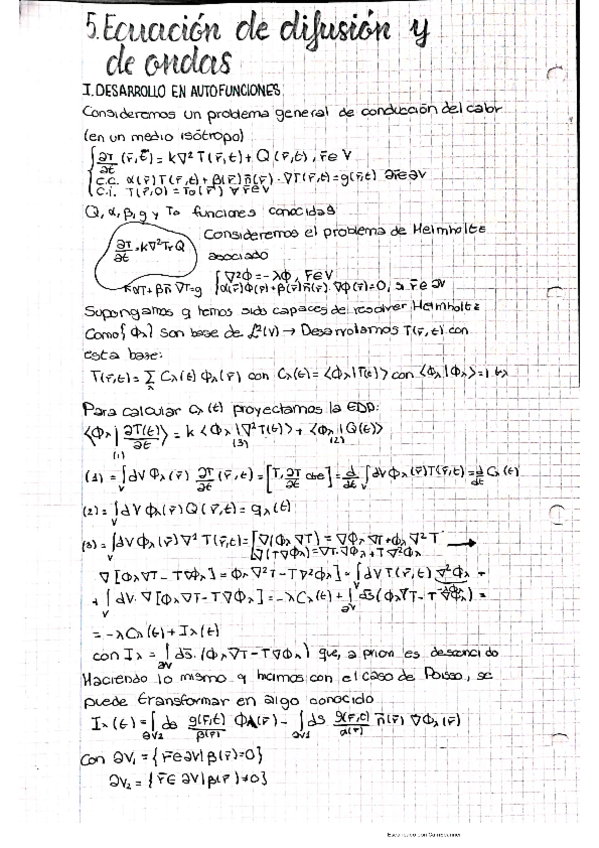 5. Ecuación de difusión y
de ondas
I. DESARROLLO EN AUTOFUNCIONES
Consideremos un problema general de conducción del calor
(en un medio isótropo)
∂T/∂t (r̄,t) = k∇²T(r̄,t) + Q(r̄,t), r̄ ∈ V
C.C. α(r̄)T(r̄,t) + β(r̄)n̄(r̄)·∇T(r̄,t) = g(r̄,t) ∂r̄∈∂V
C.I. T(r̄,0) = T₀(r̄) ∀r̄∈V
Q, α, β, g y T₀ funciones conocidas
Consideremos el problema de Helmholtz
∂T/∂t = k∇²T+Q
asociado
∇²Φ = -λΦ, r̄∈V
αT + βn̄ ∇T = g
α(r̄)Φ(r̄)+β(r̄)n̄(r̄)·∇Φ(r̄)=0, si r̄∈∂V
Supongamos q hemos sido capaces de resolver Helmholtz
Como {Φλ} son base de L²(V) → Desarrollamos T(r̄,t) con
esta base:
T(r̄,t) = Σλ Cλ(t) Φλ(r̄) con Cλ(t) = <Φλ|T(t)> con <Φλ|Φλ> = 1 ∀λ
Para calcular Cλ(t) proyectamos la EDD:
<Φλ| ∂T(t)/∂t> = k <Φλ|∇²T(t)> + <Φλ|Q(t)>
(1) (3) (2)
(1) = ∫V dV Φλ(r̄) ∂T/∂t (r̄,t) = [T, ∂T/∂t cte] = d/dt ∫V dV Φλ(r̄)T(r̄,t) = d/dt Cλ(t)
(2) = ∫V dV Φλ(r̄)Q(r̄,t) = qλ(t)
(3) = ∫V dV Φλ(r̄)∇²T(r̄,t) = [∇(Φλ∇T) = ∇Φλ∇T+Φλ∇²T
∇(T∇Φλ) = ∇T·∇Φλ + T∇²Φλ →
∇[Φλ∇T - T∇Φλ] = Φλ∇²T - T∇²Φλ] = ∫V dV T(r̄,t) ∇²Φλ +
-λΦλ
+ ∫V dV·∇[Φλ∇T - T∇Φλ] = -λCλ(t) + ∫∂V ds̄(Φλ∇T - T∇Φλ) =
= -λCλ(t) + Iλ(t)
con Iλ = ∫∂V ds̄·(Φλ∇T - T∇Φλ) que, a priori es desconocido
Haciendo lo mismo q hicimos con el caso de Poisso, se
puede transformar en algo conocido
Iλ(t) = ∫∂V2 ds g(r̄,t)/β(r̄) Φλ(r̄) - ∫∂V1 ds g(r̄,t)/α(r̄) n̄(r̄) ∇Φλ(r̄)
Con ∂V₁ = {r̄∈∂V|β(r̄)=0}
∂V₂ = {r̄∈∂V|β(r̄)≠0}